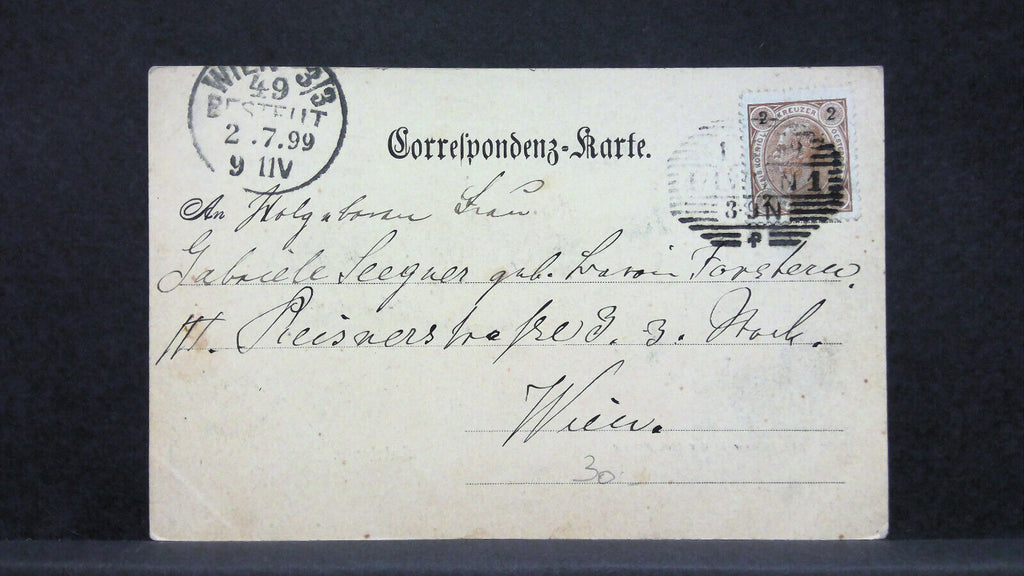 WIEN 3/3
49
BESTELLT
2.7.99
9 11V
Correspondenz-Karte.
2 KREUZER 2
1
N 1
8-9N
An Frau
Gabriele Seegner geb. Baronin Forstern
III. Reisnerstraße 3. 3. Stock.
Wien.
30